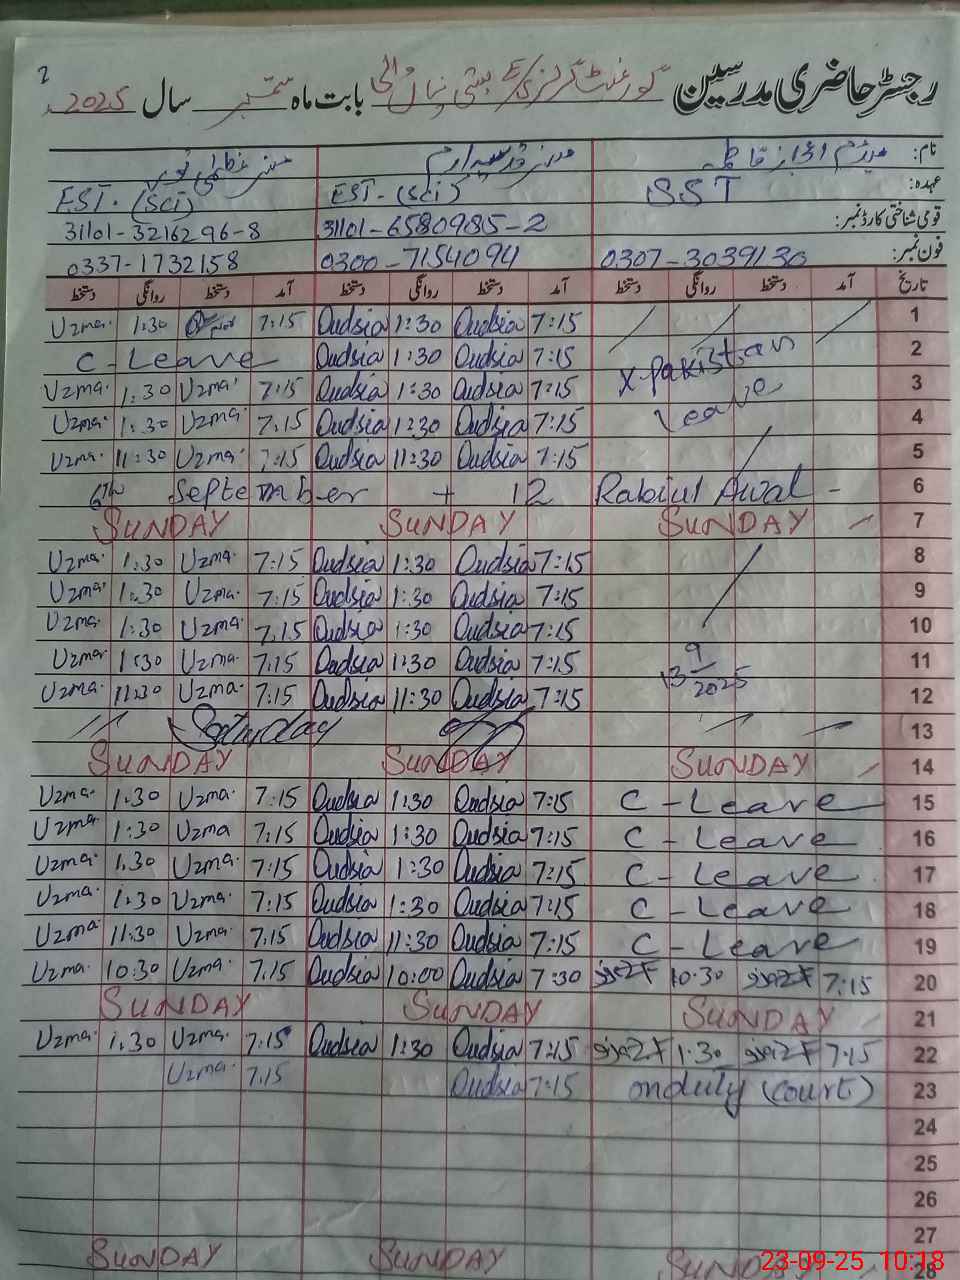 2
رجسٹر حاضری مدرسین گورنمنٹ گرلز بابت ماہ ستمبر سال 2025
نام:
عہدہ: SST EST-(Sci) EST-(Sci)
قومی شناختی کارڈ نمبر: 31101-6580985-2 31101-3216296-8
فون نمبر: 0307-3039130 0300-7154094 0337-1732158
تاریخ آمد دستخط روانگی دستخط آمد دستخط روانگی دستخط آمد دستخط روانگی دستخط
Uzma. 1:30 7:15 Oudsia 1:30 Oudsia 7:15 1
C-Leave Oudsia 1:30 Oudsia 7:15 X-Pakistan 2
Uzma. 1:30 Uzma. 7:15 Oudsia 1:30 Oudsia 7:15 Leave 3
Uzma. 1:30 Uzma. 7:15 Oudsia 1:30 Oudsia 7:15 4
Uzma. 11:30 Uzma. 7:15 Oudsia 11:30 Oudsia 7:15 5
6th September + 12 Rabiul Awal - 6
SUNDAY SUNDAY SUNDAY 7
Uzma. 1:30 Uzma. 7:15 Oudsia 1:30 Oudsia 7:15 8
Uzma. 1:30 Uzma. 7:15 Oudsia 1:30 Oudsia 7:15 9
Uzma. 1:30 Uzma. 7:15 Oudsia 1:30 Oudsia 7:15 10
Uzma. 1:30 Uzma. 7:15 Oudsia 1:30 Oudsia 7:15 13 9/2025 11
Uzma. 11:30 Uzma. 7:15 Oudsia 11:30 Oudsia 7:15 12
Saturday 13
SUNDAY SUNDAY SUNDAY 14
Uzma. 1:30 Uzma. 7:15 Oudsia 1:30 Oudsia 7:15 C-Leave 15
Uzma. 1:30 Uzma 7:15 Oudsia 1:30 Oudsia 7:15 C-Leave 16
Uzma. 1:30 Uzma. 7:15 Oudsia 1:30 Oudsia 7:15 C-Leave 17
Uzma. 1:30 Uzma. 7:15 Oudsia 1:30 Oudsia 7:15 C-Leave 18
Uzma 11:30 Uzma. 7:15 Oudsia 11:30 Oudsia 7:15 C-Leave 19
Uzma. 10:30 Uzma. 7:15 Oudsia 10:00 Oudsia 7:30 10:30 7:15 20
SUNDAY SUNDAY SUNDAY 21
Uzma. 1:30 Uzma. 7:15 Oudsia 1:30 Oudsia 7:15 1:30 7:15 22
Uzma. 7:15 Oudsia 7:15 onduty (court) 23
24
25
26
27
SUNDAY SUNDAY SUNDAY 28
23-09-25 10:18